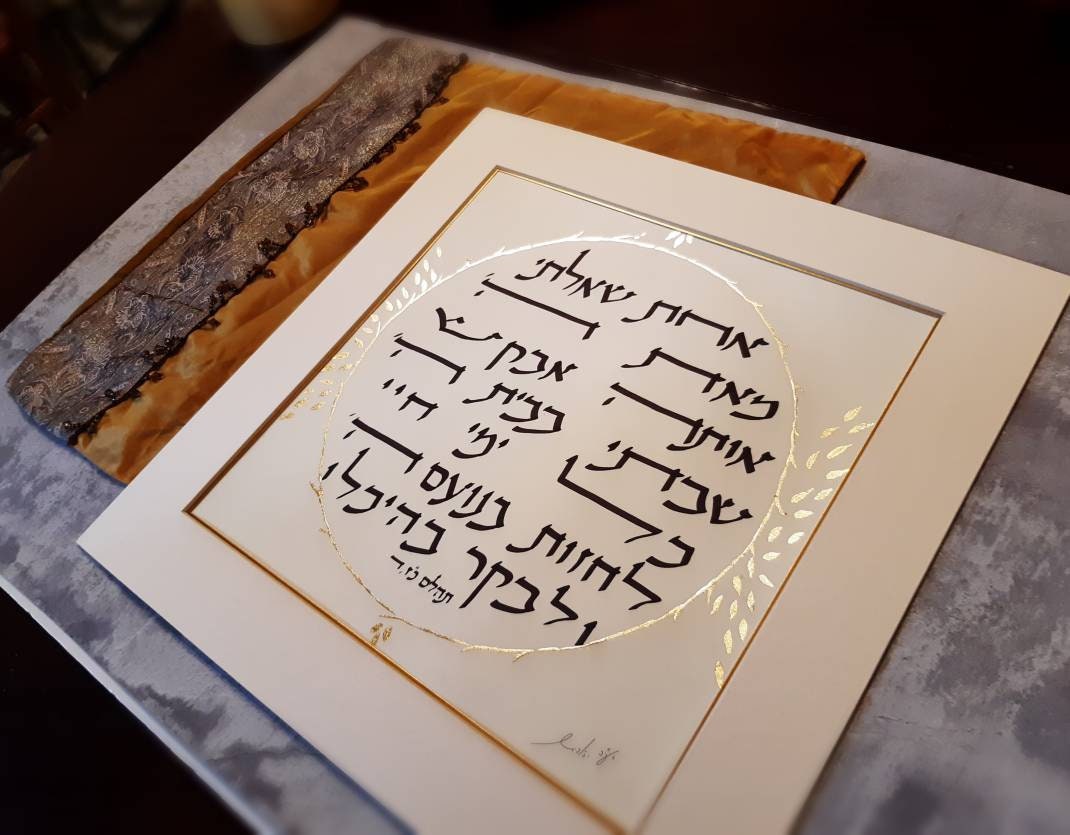 אחת שאלתי
מאת ה'
אותה אבקש
שבתי בבית ה'
כל ימי חיי
לחזות בנועם ה'
ולבקר בהיכלו
תהלים כז,ד